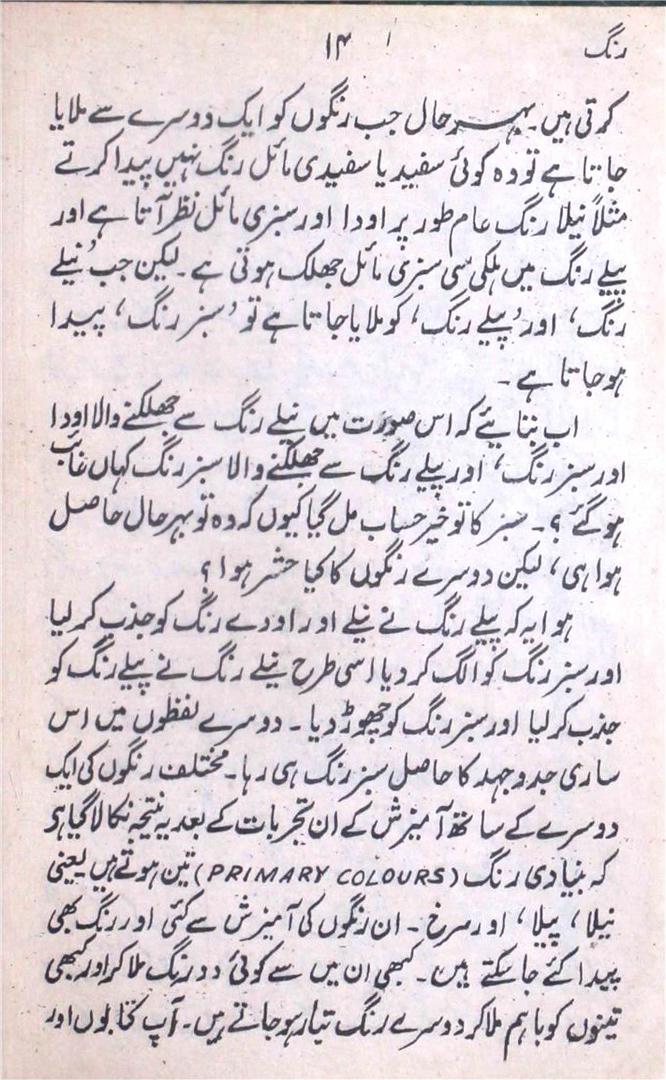 رنگ
۱۴
کرتی ہیں۔ بہر حال جب رنگوں کو ایک دوسرے سے ملایا
جاتا ہے تو وہ کوئی سفید یا سفیدی مائل رنگ نہیں پیدا کرتے
مثلاً نیلا رنگ عام طور پر اودا اور سبزی مائل نظر آتا ہے اور
پیلے رنگ میں ہلکی سی سبزی مائل جھلک ہوتی ہے۔ لیکن جب 'نیلے
رنگ، اور 'پیلے رنگ، کو ملایا جاتا ہے تو 'سبز رنگ، پیدا
ہو جاتا ہے۔
اب بتایئے کہ اس صورت میں نیلے رنگ سے جھلکنے والا اودا
اور سبز رنگ، اور پیلے رنگ سے جھلکنے والا سبز رنگ کہاں غائب
ہو گئے؟۔ سبز کا تو خیر حساب مل گیا کیوں کہ وہ تو بہر حال حاصل
ہوا ہی، لیکن دوسرے رنگوں کا کیا حشر ہوا؟
ہوا یہ کہ پیلے رنگ نے نیلے اور اودے رنگ کو جذب کر لیا
اور سبز رنگ کو الگ کر دیا اسی طرح نیلے رنگ نے پیلے رنگ کو
جذب کر لیا اور سبز رنگ کو چھوڑ دیا۔ دوسرے لفظوں میں اس
ساری جدوجہد کا حاصل سبز رنگ ہی رہا۔ مختلف رنگوں کی ایک
دوسرے کے ساتھ آمیزش کے ان تجربات کے بعد یہ نتیجہ نکالا گیا ہو
کہ بنیادی رنگ (PRIMARY COLOURS) تین ہوتے ہیں یعنی
نیلا، پیلا، اور سرخ۔ ان رنگوں کی آمیزش سے کئی اور رنگ بھی
پیدا کئے جا سکتے ہیں۔ کبھی ان میں سے کوئی دو رنگ ملا کر اور کبھی
تینوں کو باہم ملا کر دوسرے رنگ تیار ہو جاتے ہیں۔ آپ کتابوں اور